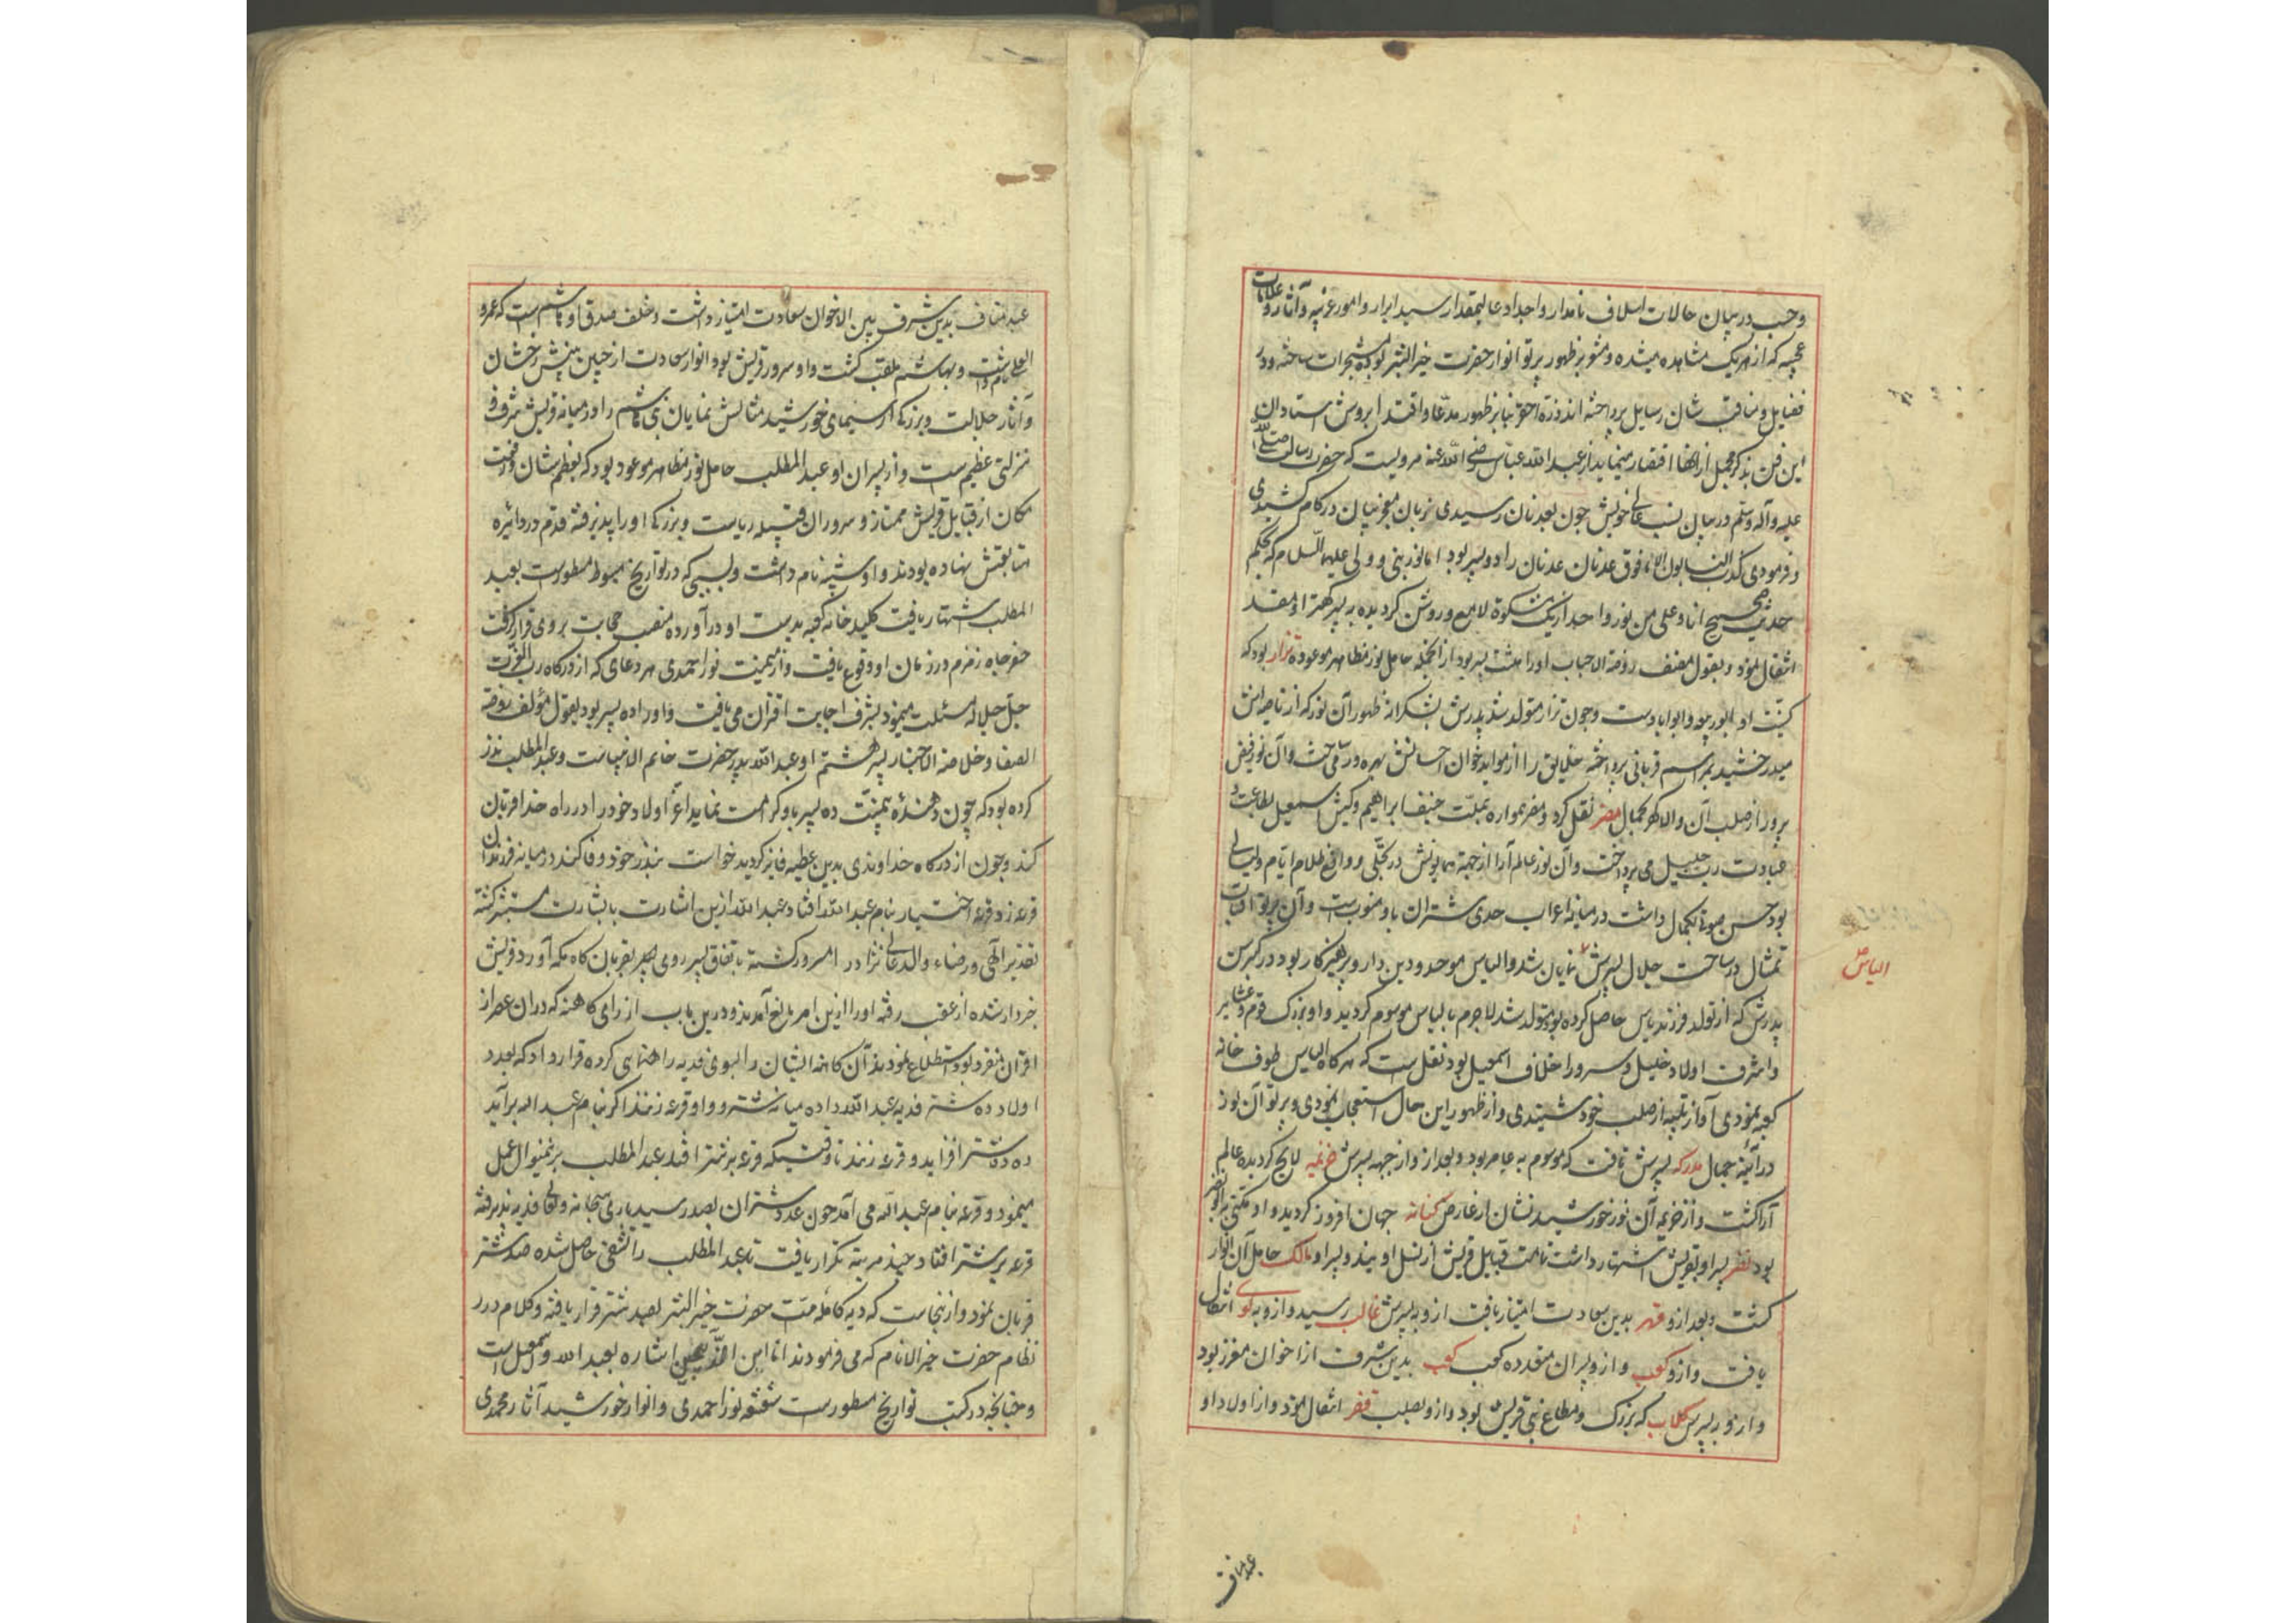 و حسب در بیان حالات اسلاف نامدار و اجداد عالیمقدار سید ابرار و امور غریبه و آثار و علامات
عجیبه که از هر یک مشاهده میشده و مشو بر ظهور پرتو انوار حضرت خیر البشر بوده ساخته و در
فضایل و مناقب شان رسایل پرداخته اند ذره احقر بنا بر ظهور مدعا و اقتدا بروش استادان
این فن بذکر مجمل از انها اقتصار مینماید از عبد الله عباس رضی الله عنه مرویست که حضرت رسالت صلی الله
علیه و آله و سلم در بیان نسب عالی خویش چون بعدنان رسیدی زبان معجز بیان در کام کشیدی
و فرمودی کذب النسابون الی فوق عدنان عدنان را دو پسر بود اما نور نبی و ولی علیهما السلام که بحکم
حدیث صحیح انا و علی من نور واحد از یک مشکوة لامع و روشن کردیده به پسر کهتر او معد
انتقال نمود و بقول مصنف روضة الاحباب او را هشت پسر بود از آنجمله حامل نور مظاهر موعوده نزار بود که
کنیت او ابو ربیعه و ابو ایاد است و چون نزار متولد شد پدرش بشکرانه ظهور آن نور که از ناصیه اش
میدرخشید بمراسم قربانی پرداخته خلایق را از مواید خوان احسانش بهره ور می ساخت و آن نور فیض
پرور از صلب آن والا کهر بجمال مضر نقل کرد و مضر همواره بملت حنیف ابراهیم و کیش اسمعیل بطاعت و
عبادت رب جلیل می پرداخت و آن نور عالم آرا از جبهه همایونش در تجلی و رافع ظلام ایام و لیالی
بود حسن صوت بکمال داشت در میانه اعراب حدی شتران باو منسوب ست و آن پرتو
تمثال در ساحت جلال پسرش نمایان شد و الیاس موحد و دین دار و پرهیز کار بود در کبر سن
الیاس
پدرش که از تولد فرزند یاس حاصل کرده بود متولد شد لاجرم بالیاس موسوم کردید و او بزرک قوم و عشایر
و اشرف اولاد خلیل و سرور اخلاف اسمعیل بود نقل ست که هر کاه الیاس طوف خانه
کعبه نمودی آواز تلبیه از صلب خود شنیدی و از ظهور این حال استعجاب نمودی و پرتو آن نور
در آئینه جمال مدرکه پسرش تافت که موسوم به عامر بود و بعد از و از جبهه پسرش خزیمه لایح کردیده عالم
آرا کشت و از خزیمه آن نور خورشید نشان از عارض کنانه جهان افروز کردید و او مکنی به ابو نضر
بود نضر پسر او بقریش اشتهار داشت تمامت قبایل قریش از نسل اویند و پسر او مالک حامل آن انوار
کشت و بعد از و فهر بدین سعادت امتیاز یافت از و به پسرش غالب رسید و از و به لوی انتقال
یافت و از و کعب و از و پسران متعدده کعب بدین شرف از اخوان معزز بود
و از و پسرش کلاب که بزرک و مطاع بنی قریش بود و از و بصلب قصی انتقال نمود و از اولاد او
عبد مناف
عبد مناف بدین شرف بین الاخوان سعادت امتیاز داشت و خلف صدق او هاشم ست که عمرو
العلی نام داشت و بهاشم ملقب کشت و او سرور قریش بود انوار سعادت از جبین مبینش رخشان
و آثار جلالت و بزرکی از سیمای خورشید مثالش نمایان بنی هاشم را در میانه قریش شرف و
منزلتی عظیم ست و از پسران او عبد المطلب حامل نور مظاهر موعود بود که بعظم شان و رفعت
مکان از قبایل قریش ممتاز و سروران قبیله ریاست و بزرکی او را پذیرفته قدم در دائره
متابعتش نهاده بودند و او شیبه نام داشت و بسببی که در تواریخ مبسوط مسطورست بعبد
المطلب اشتهار یافت کلید خانه کعبه بدست او در آورده منصب حجابت بر وی قرار کرفت
حفر چاه زمزم در زمان او وقوع یافت و از میمنت نور احمدی هر دعای که از درکاه رب العزت
جل جلاله مسئلت مینمود بشرف اجابت اقتران می یافت و او را ده پسر بود بقول مؤلف روضة
الصفا و خلاصة الاخبار پسر هشتم او عبد الله پدر حضرت خاتم الانبیاست و عبد المطلب نذر
کرده بود که چون دهنده بیمنت ده پسر باو کرامت نماید اعز اولاد خود را در راه خدا قربان
کند و چون از درکاه خداوندی بدین عطیه فایز کردید خواست بنذر خود وفا کند در میانه فرزندان
قرعه زد قرعه اختیار بنام عبد الله افتاد عبد الله ازین اشارت با بشارت مستبشر کشته
تقدیر الهی و رضاء والد عالی نژاد را مسرور کشته باتفاق پسر روی بقربان کاه مکه آورد قریش
خبردار شده از عقب رفته او را ازین امر مانع آمدند و درین باب از رای کاهنه که در ان عصر از
اقران منفرد بود استطلاع نمودند آن کاهنه ایشان را بسوی فدیه راهنمایی کرده قرار داد که بعدد
اولاد ده شتر فدیه عبد الله داده میانه شتر و او قرعه زنند اکر بنام عبد الله برآید
ده ده شتر افزاید و قرعه زنند تا وقتیکه قرعه بر شتر افتد عبد المطلب برینمنوال عمل
مینمود و قرعه بنام عبد الله می آمد چون عدد شتران بصد رسید باری سبحانه و تعالی فدیه پذیرفته
قرعه بر شتر افتاد و چند مرتبه تکرار یافت تا عبد المطلب را تشفی حاصل شده صد شتر
قربان نمود و از ینجاست که دیه کامله ملت حضرت خیر البشر بصد شتر قرار یافته و کلام درر
نظام حضرت خیر الانام که می فرمودند انا ابن الذبیحین اشاره بعبد الله و اسمعیل است
و چنانچه در کتب تواریخ مسطورست شعشعه نور احمدی و انوار خورشید آثار محمدی